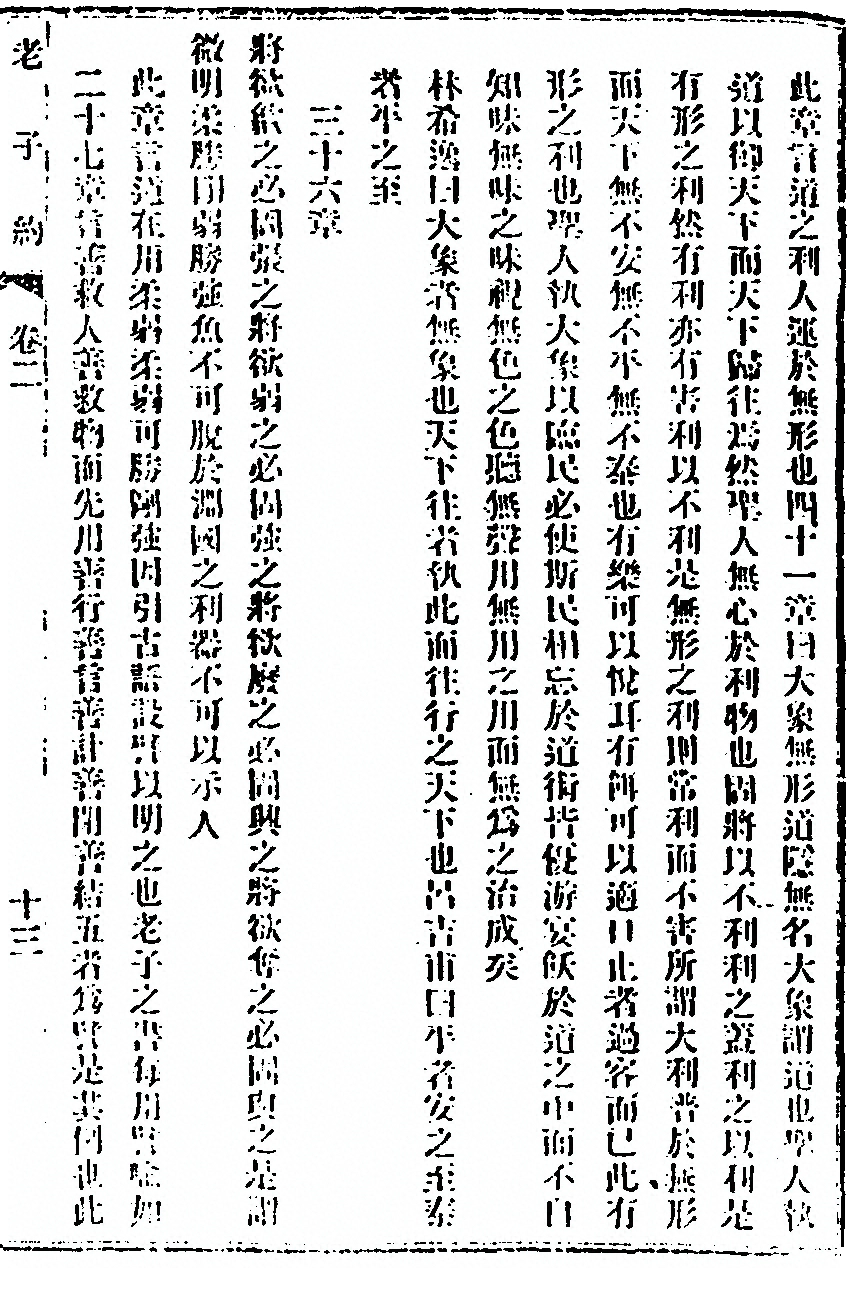 此章言道之利人運於無形也四十一章曰大象無形道隱無名大象謂道也聖人執
道以御天下而天下歸往焉然聖人無心於利物也固將以不利利之蓋利之以利是
有形之利然有利亦有害利以不利是無形之利則常利而不害所謂大利普於無形
而天下無不安無不平無不泰也有樂可以悅耳有餌可以適口止者過客而已此有
形之利也聖人執大象以臨民必使斯民相忘於道術皆優游宴飫於道之中而不自
知味無味之味視無色之色聽無聲用無用之用而無為之治成矣
林希逸曰大象者無象也天下往者執此而往行之天下也呂吉甫曰平者安之至泰
者平之至
三十六章
將欲歙之必固張之將欲弱之必固強之將欲廢之必固興之將欲奪之必固與之是謂
微明柔勝剛弱勝強魚不可脫於淵國之利器不可以示人
此章言道在用柔弱柔弱可勝剛強因引古語設譬以明之也老子之書每用譬喻如
二十七章言善救人善救物而先用善行善言善計善閉善結五者為譬是其例也此
老子約 卷二 十三